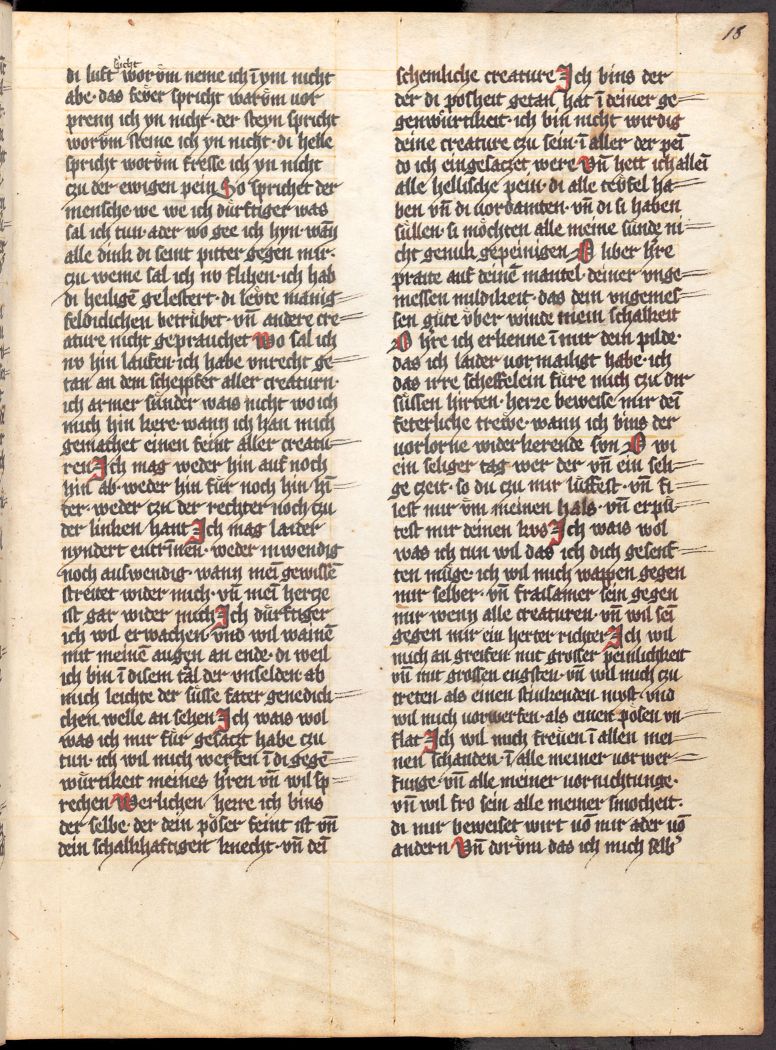 18
spricht
di luft worüm neme ich ī ym nicht
abe· das fewer spricht warüm vor
prenn ich yn nicht· der steyn spricht
worüm steine ich yn nicht· di helle
spricht worüm fresse ich yn nicht
czu der ewigen pein So sprichet der
mensche· we we ich dürftiger was
sal ich tun· ader wo gee ich hyn· wañ
alle dink di seint pitter gegen mir·
czu weme sal ich nv flihen· ich hab
di heiligē gelestert· di lewte manig=
feldiclichen betrübet· vñ andere cre=
ature nicht geprauchet Wo sal ich
nv hin laufen· ich habe vnrecht ge=
tan an dem scheppfer aller creaturn·
ich armer sünder wais nicht wo ich
mich hin kere· wann ich han mich
gemachet einen feint aller creatu=
ren Ich mag weder hin auf noch
hin ab· weder hin für noch hin hī=
der· weder czu der rechter noch czu
der linken hant Ich mag laider
nyndert entrīnen· weder inwendig
noch auswendig· wann meī gewissē
streitet wider mich· vñ meī hercze
ist gar wider mich Ich dürftiger
ich wil erwachen· vnd wil wainē
mit meinē augen an ende· di weil
ich bin ī disem tal der vnselden· ab
mich leichte der süsse fater genedich=
chen welle an sehen Ich wais wol
was ich mir für gesaczt habe czu
tun· ich wil mich werfen ī di gegē=
würtikeit meines h̄ren vñ wil sp=
rechen Werlichen herre ich bins
der selbe· der dein pöser feint ist vñ
dein schalkhaftigen knecht· vñ deī
schemliche creature Ich bins der
der di posheit getan hat ī deiner ge=
genwürtikeit· ich bin nicht wirdig
deine creature czu sein· ī aller der peī
do ich eingesaczet were Vñ hett ich allei
alle hellische pein· di alle tewfel ha=
ben vñ di vordamten· vñ di si haben
süllen· si möchten alle meine sünde ni=
cht genuk gepeinigen O liber h̄re
praite auf deinē mantel· deiner vnge=
messen mildikeit· das dein vngemes=
sen güte über winde mein schalkeit
O h̄re ich erkenne ī mir dein pilde·
das ich laider vormailigt habe· ich
das irre scheffelein füre mich czu dir
süssen hirten· herze beweise mir deī
feterliche trewe· wann ich bins der
vorlorne wider kerende svn O wi
ein seliger tag wer der vñ ein seli=
ge czeit· so du czu mir luffest· vñ fi=
lest mir üm meinen hals· vñ erpü=
test mir deinen kvs Ich wais wol
was ich tun wil das ich dich gesenf=
ten müge· ich wil mich wappen gegen
mir selber· vñ fraisamer sein gegen
mir wenn alle creaturen· vñ wil seī
gegen mir ein herter richter Ich wil
mich an greifen mit grosser peinlichkeit
vñ mit grossen engsten· vñ wil mich czu
treten als einen stinkenden mist· vnd
wil mich vorwerfen· als einen pösen vn=
flat Ich wil mich frewen ī allen mei=
nen schanden· ī alle meiner vor wer=
funge· vñ alle meiner vornichtunge·
vñ wil fro sein alle meiner smocheit·
di mir beweiset wirt vō mir ader vō
andern Vñ dorüm das ich mich selb'